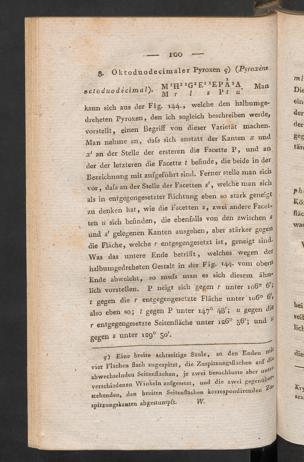 — 100 —
8. Oktoduodecimaler Pyroxen 9) (Pyroxène
octoduodécimal). M¹H¹G²E¹¹EPA¹A Man
M r l s P t u
kann sich aus der Fig. 144., welche den halbumge-
drehten Pyroxen, den ich sogleich beschreiben werde,
vorstellt, einen Begriff von dieser Varietät machen.
Man nehme an, dafs sich anstatt der Kanten x und
x' an der Stelle der ersteren die Facette P, und an
der der letzteren die Facette t befinde, die beide in der
Bezeichnung mit aufgeführt sind. Ferner stelle man sich
vor, dafs an der Stelle der Facetten s', welche man sich
als in entgegengesetzter Richtung eben so stark geneigt
zu denken hat, wie die Facetten s, zwei andere Facet-
ten u sich befinden, die ebenfalls von den zwischen s
und s' gelegenen Kanten ausgehen, aber stärker gegen
die Fläche, welche r entgegengesetzt ist, geneigt sind.
Was das untere Ende betrifft, welches wegen der
halbumgedrehten Gestalt in der Fig. 144. vom obern
Ende abweicht, so mufs man es sich diesem ähn-
lich vorstellen. P neigt sich gegen r unter 106° 6';
t gegen die r entgegengesetzte Fläche unter 106° 6',
also eben so; t gegen P unter 147° 48'; u gegen die
r entgegengesetzte Seitenfläche unter 126° 36'; und u
gegen s unter 129° 30'.
9) Eine breite achtseitige Säule, an den Enden mit
vier Flächen flach zugespitzt, die Zuspitzungsflächen auf die
abwechselnden Seitenflächen, je zwei benachbarte aber unter
verschiedenen Winkeln aufgesetzt, und die zwei gegenüber-
stehenden, den breiten Seitenflächen korrespondirenden Zu-
spitzungskanten abgestumpft. W.